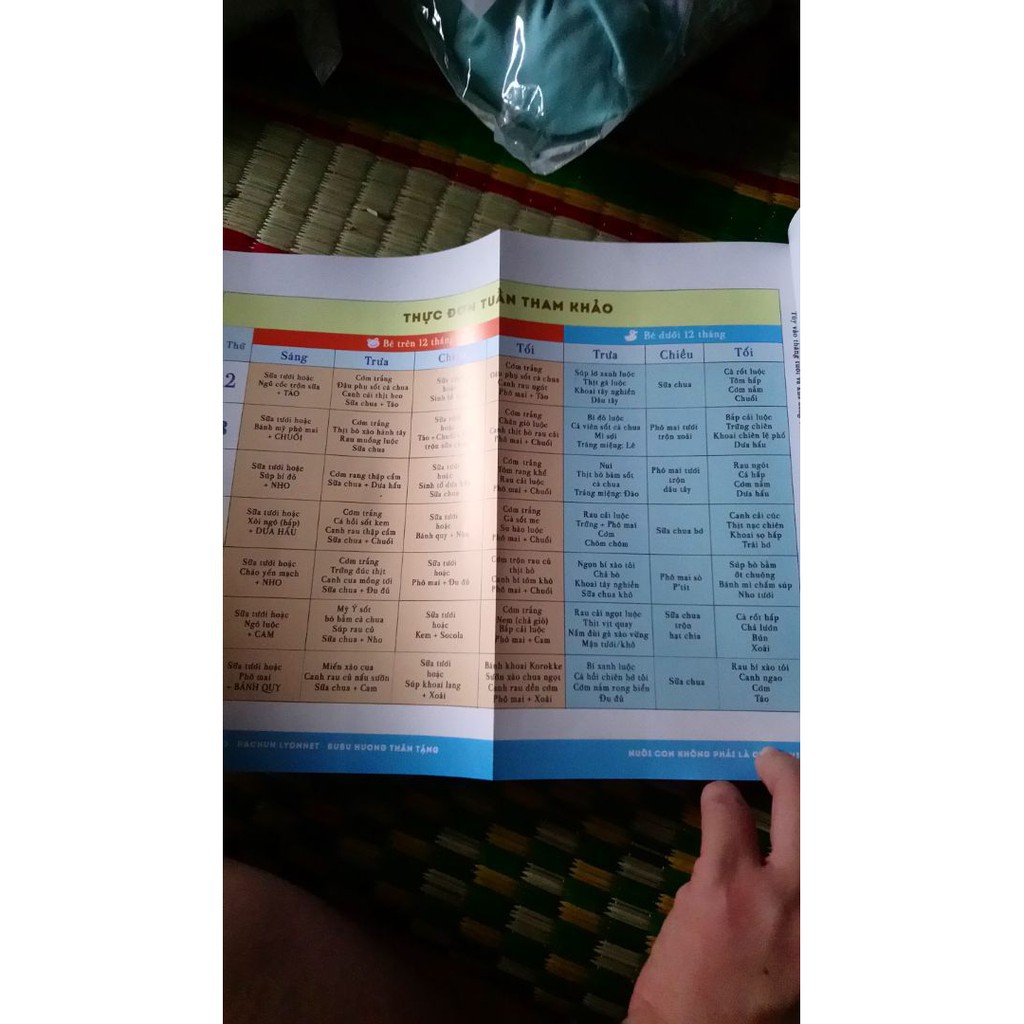 THỰC ĐƠN TUẦN THAM KHẢO
Thứ
Bé trên 12 tháng
Bé dưới 12 tháng
Sáng
Trưa
Tối
Trưa
Chiều
Tối
2
Sữa tươi hoặc
Ngũ cốc trộn sữa
+ TÁO
Cơm trắng
Đậu phụ sốt cà chua
Canh cải thịt heo
Sữa chua + Táo
Cơm trắng
phụ sốt cà chua
Canh rau ngót
Phô mai + Táo
Súp lơ xanh luộc
Thịt gà luộc
Khoai tây nghiền
Dâu tây
Sữa chua
Cà rốt luộc
Tôm hấp
Cơm nắm
Chuối
Sữa tươi hoặc
Bánh mỳ phô mai
+ CHUỐI
Cơm trắng
Thịt bò xào hành tây
Rau muống luộc
Sữa chua
Cơm trắng
Chân giò luộc
Canh thịt bò rau cải
Phô mai + Chuối
Bí đỏ luộc
Cá viên sốt cà chua
Mì sợi
Tráng miệng: Lê
Phô mai tươi
trộn xoài
Bắp cải luộc
Trứng chiên
Khoai chiên lệ phố
Dưa hấu
Sữa tươi hoặc
Súp bí đỏ
+ NHO
Cơm rang thập cẩm
Sữa chua + Dưa hấu
Sữa
hoặc
Sinh tố
Sữa chua
Cơm trắng
Tôm rang khế
Rau cải luộc
Phô mai + Chuối
Nui
Thịt bò băm sốt
cà chua
Tráng miệng: Đào
Phô mai tươi
trộn
dâu tây
Rau ngót
Cá hấp
Cơm nắm
Dưa hấu
Sữa tươi hoặc
Xôi ngô (bắp)
+ DƯA HẤU
Cơm trắng
Cá hồi sốt kem
Canh rau thập cẩm
Sữa chua + Chuối
Sữa tươi
hoặc
Bánh quy + Nho
Cơm trắng
Gà sốt me
Su hào luộc
Phô mai + Chuối
Rau cải luộc
Trứng + Phô mai
Cơm
Chôm chôm
Sữa chua bơ
Canh cải cúc
Thịt nạc chiên
Khoai sọ hấp
Trái bơ
Sữa tươi hoặc
Cháo yến mạch
+ NHO
Cơm trắng
Trứng đúc thịt
Canh cua mồng tơi
Sữa chua + Đu đủ
Sữa tươi
hoặc
Phô mai + Đu đủ
Cơm trộn rau củ
thịt bò
Canh bí tôm khô
Phô mai + Chuối
Ngọn bí xào tỏi
Chả bò
Khoai tây nghiền
Sữa chua khô
Phô mai sò
P'tit
Súp bò bằm
ớt chuông
Bánh mì chấm súp
Nho tươi
Sữa tươi hoặc
Ngô luộc
+ CAM
Mỳ Ý sốt
bò bằm cà chua
Súp rau củ
Sữa chua + Nho
Sữa tươi
hoặc
Kem + Socola
Cơm trắng
Nem (chả giò)
Bắp cải luộc
Phô mai + Cam
Rau cải ngọt luộc
Thịt vịt quay
Nấm đùi gà xào vừng
Mận tươi/khô
Sữa chua
trộn
hạt chia
Cà rốt hấp
Chả lươn
Bún
Xoài
Sữa tươi hoặc
Phô mai
+ BÁNH QUY
Miến xào cua
Canh rau củ nấu sườn
Sữa chua + Cam
Sữa tươi
hoặc
Súp khoai lang
+ Xoài
Bánh khoai Korokke
Sườn xào chua ngọt
Canh rau dền cơm
Phô mai + Xoài
Bí xanh luộc
Cá hồi chiên bơ tỏi
Cơm nắm rong biển
Đu đủ
Sữa chua
Rau bí xào tỏi
Canh ngao
Cơm
Táo
HACHUN LYONNET BUBU HƯƠNG THÂN TẶNG
NUÔI CON KHÔNG PHẢI LÀ